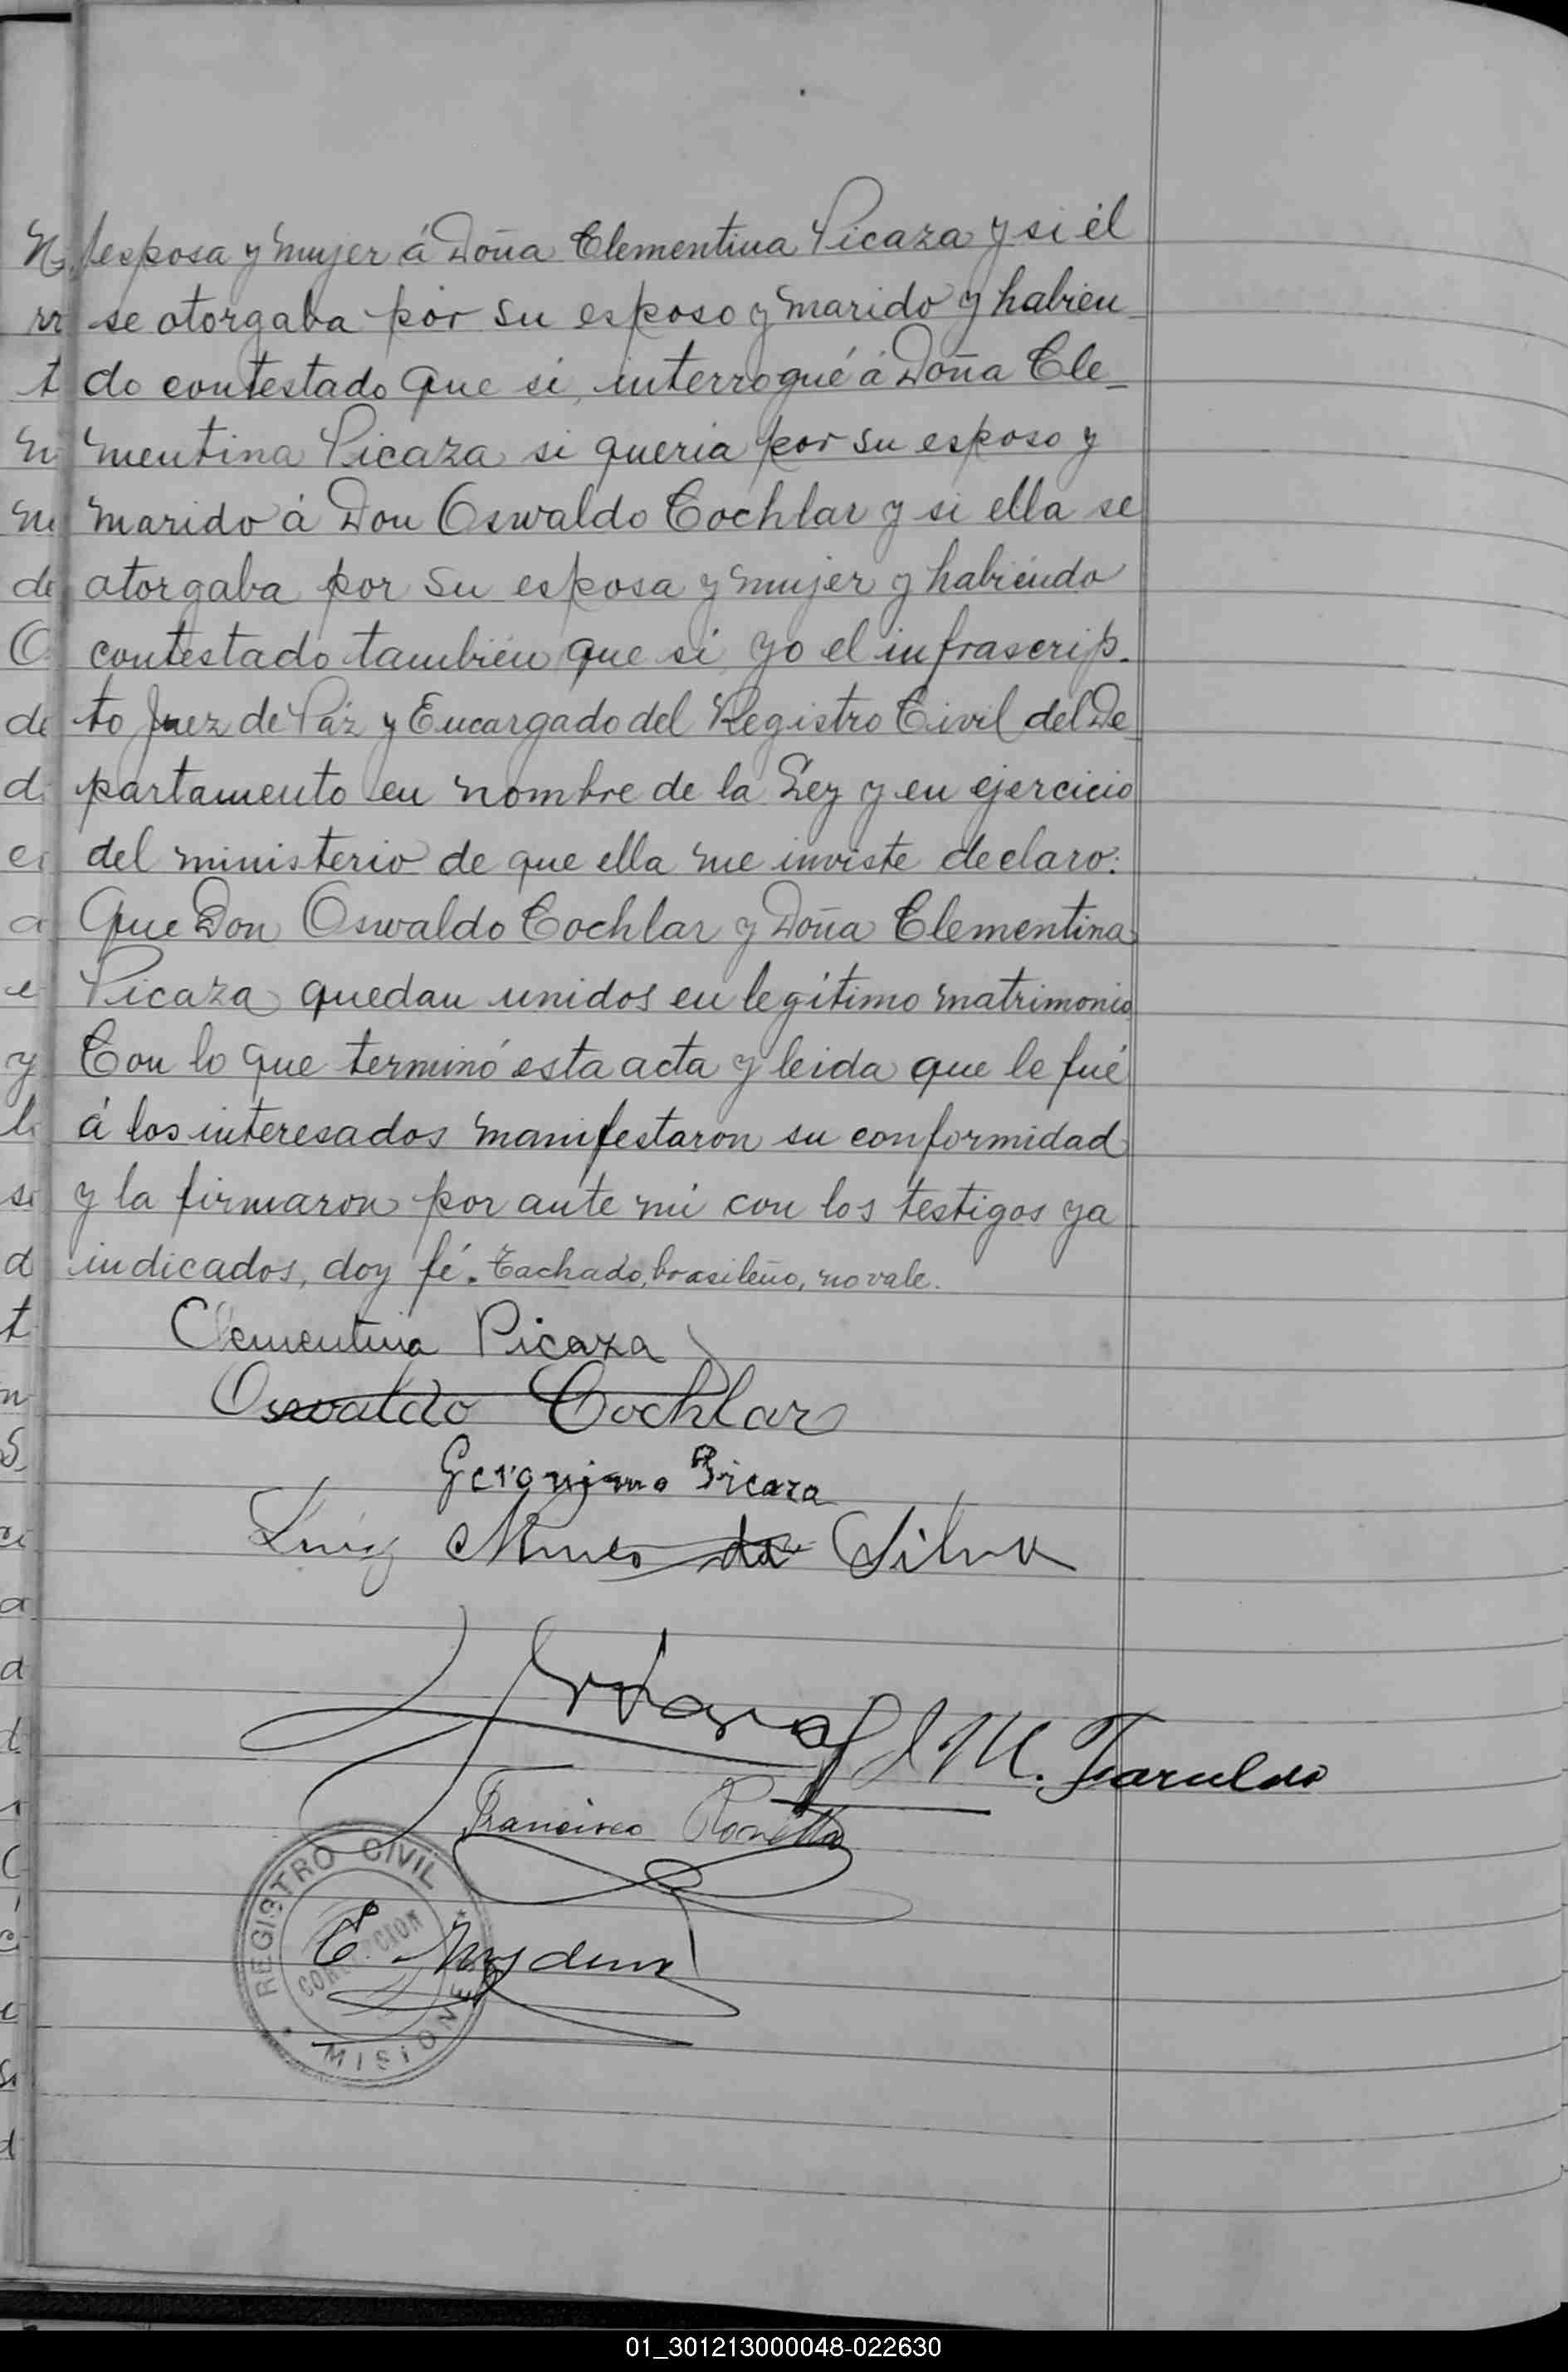 esposa y mujer á Doña Clementina Picaza y si él
se otorgaba por su esposo y marido y habien
do contestado que si, interrogué á Doña Cle_
mentina Picaza si queria por su esposo y
marido á Don Oswaldo Cochlar y si ella se
otorgaba por su esposa y mujer y habiendo
contestado tambien que si yo el infrascrip.
to Juez de Paz y Encargado del Registro Civil del De_
partamento en nombre de la Ley y en ejercicio
del ministerio de que ella me inviste declaro:
Que Don Oswaldo Cochlar y Doña Clementina
Picaza quedan unidos en legítimo matrimonio
Con lo que terminó esta acta y leida que le fué
á los interesados manifestaron su conformidad
y la firmaron por ante mi con los testigos ya
indicados, doy fé. Tachado, brasileño, no vale.
Clementina Picaza
Oswaldo Cochlar
Geronimo Picaza
Luiz Nunes da Silva
J M.
Francisco
REGISTRO CIVIL
CONCEPCION
MISIONES
01_301213000048-022630